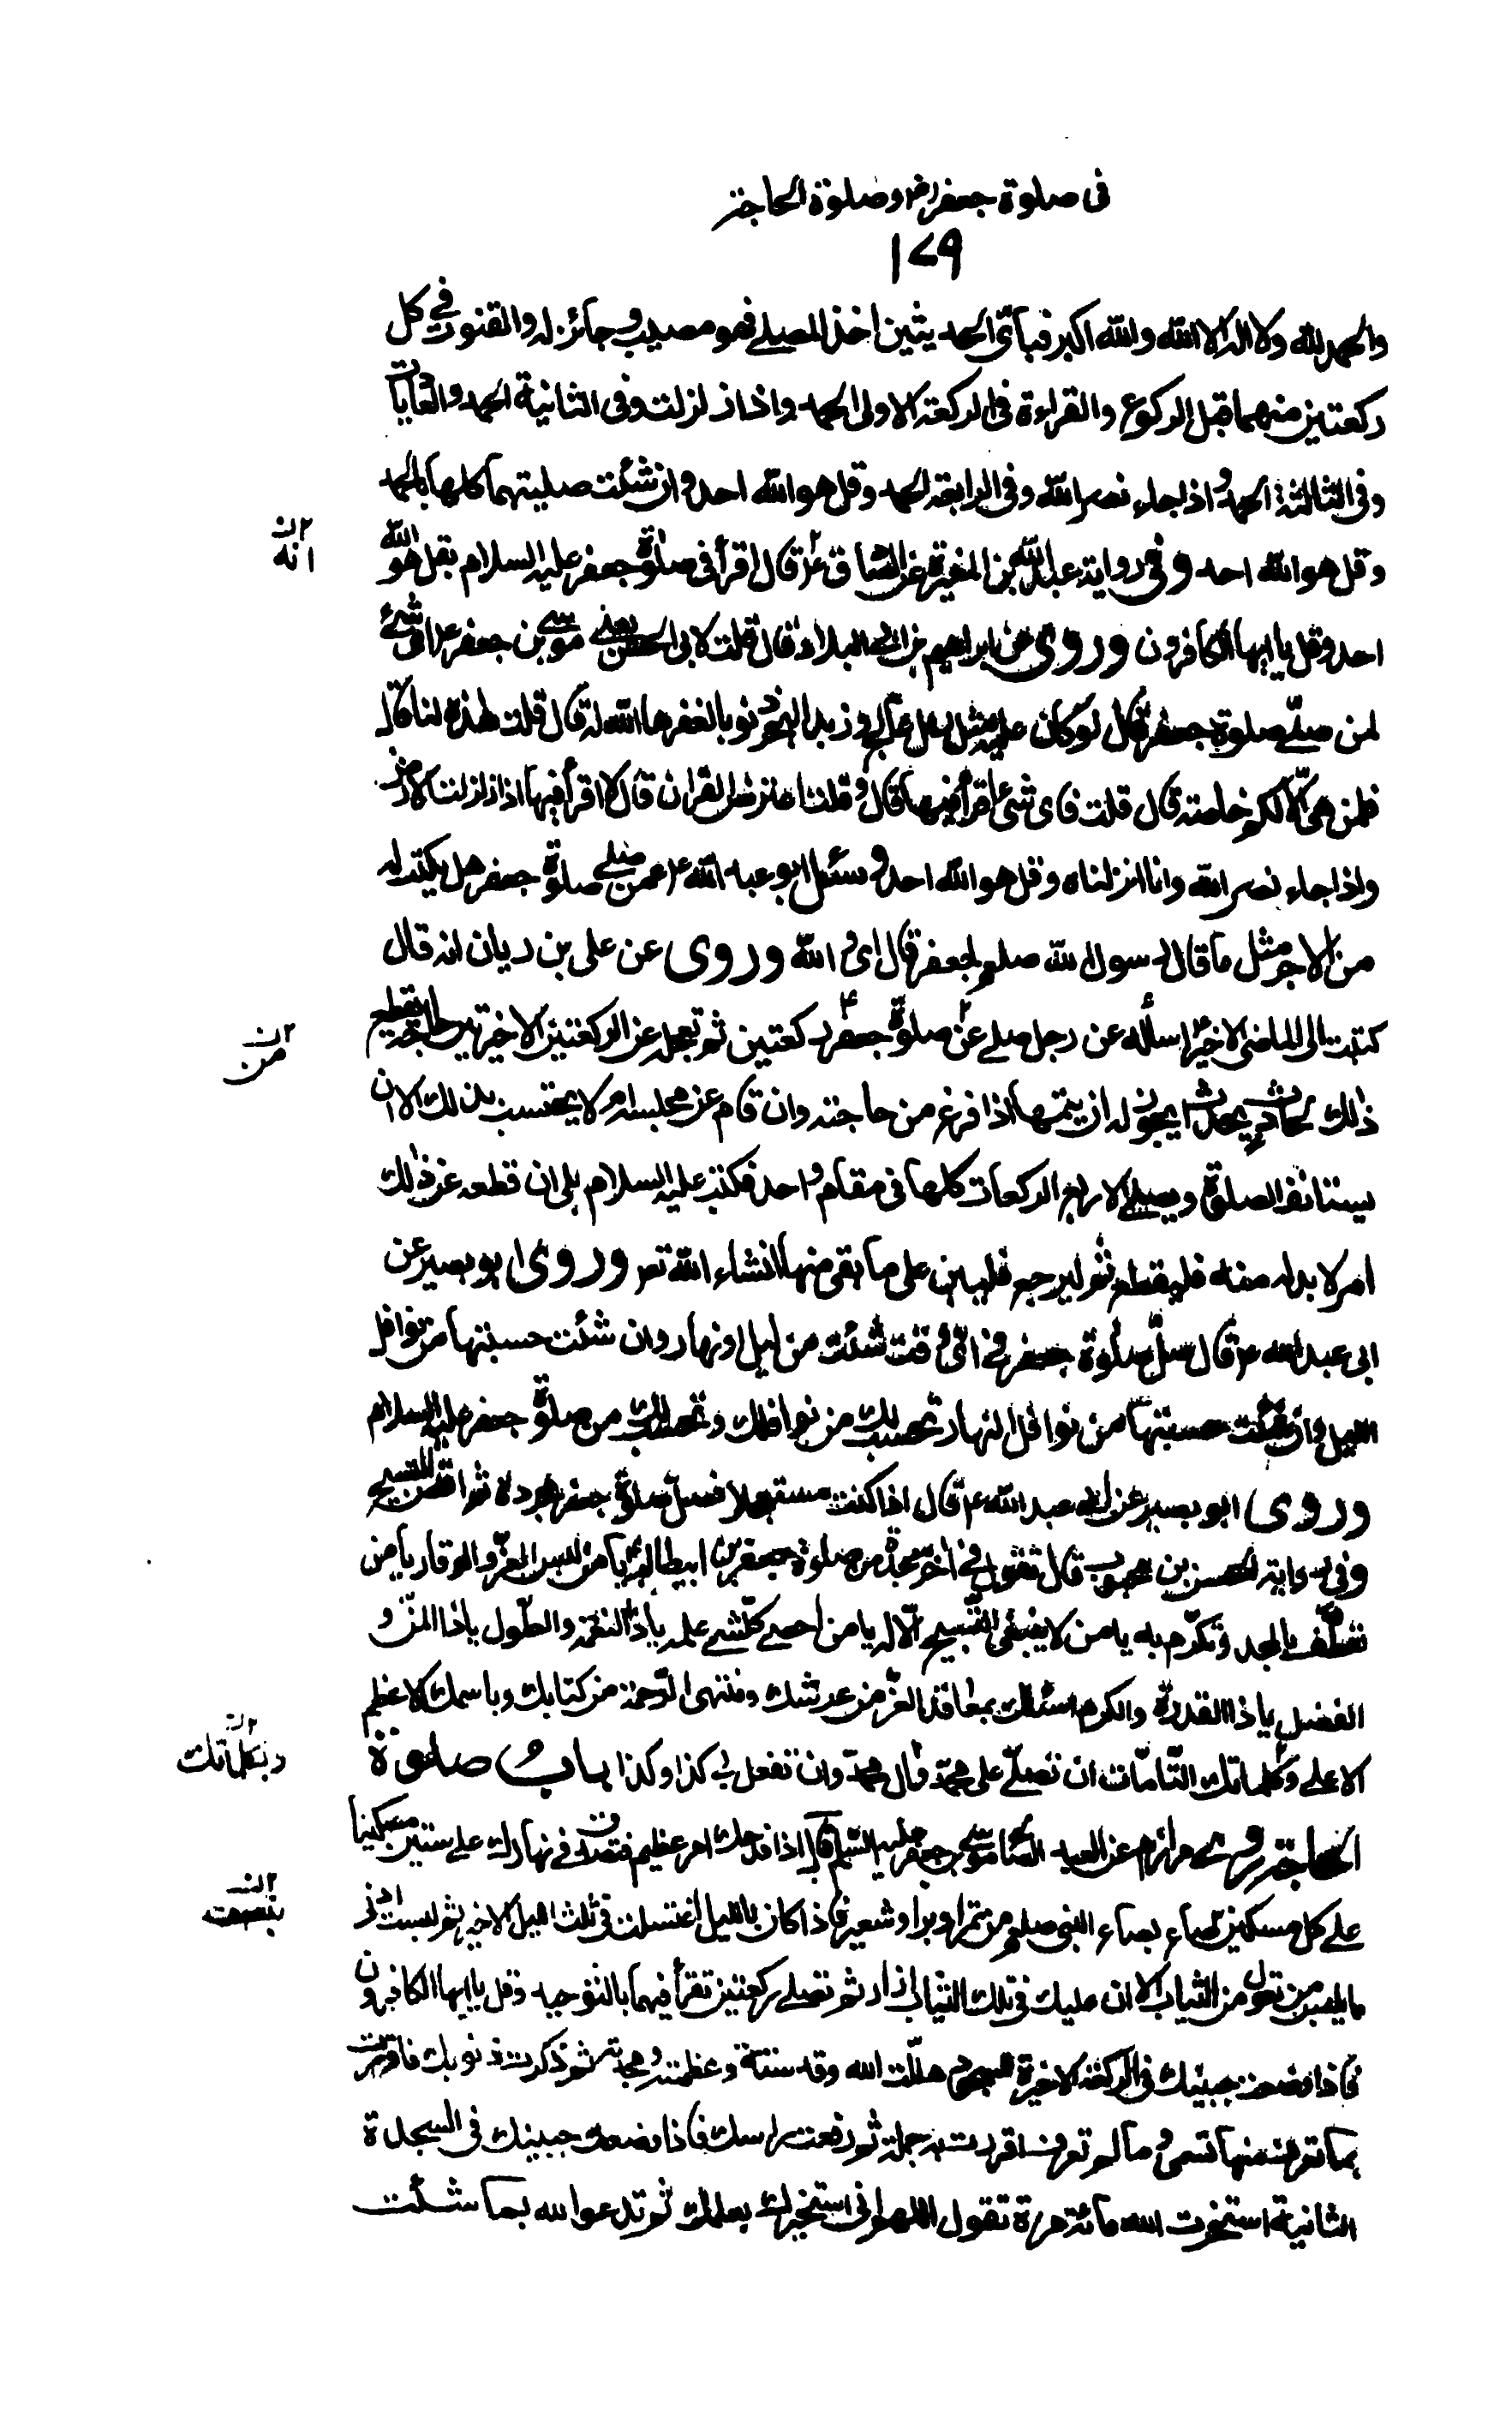 فى صلوة جعفر رض وصلوة الحاجة
١٧٩
والحمد لله ولا اله الا الله والله اكبر فبأى الحديثين اخذ المصلى فهو مصيب وجائز له والقنوت فى كل
ركعتين منهما قبل الركوع والقراءة فى الركعة الاولى الحمد واذا زلزلت وفى الثانية الحمد والعاديات
وفى الثالثة الحمد واذا جاء نصر الله وفى الرابعة الحمد وقل هو الله احد وان شئت صليتهما كلها بالحمد
وقل هو الله احد وفى رواية عبد الله بن المغيرة عن الصادق ع قال اقرأ فى صلوة جعفر عليه السلام بقل هو الله
٢ ن
انه
احد وقل يا ايها الكافرون وروى عن ابراهيم بن ابى البلاد قال قلت لابى الحسن يعنى موسى بن جعفر ع اى شئ
لمن صلى صلوة جعفر قال لو كان عليه مثل رمل عالج وزبد البحر ذنوبا لغفرها الله له قال قلت هذه لنا قال
فلمن هى الا لكم خاصة قال قلت فاى شئ اقرأ فيها قال وقلت اعترض القران قال لا اقرأ فيها اذا زلزلت الارض
واذا جاء نصر الله وانا انزلناه وقل هو الله احد وسئل ابو عبد الله ع عمن صلى صلوة جعفر هل يكتب له
من الاجر مثل ما قال رسول الله صلعم لجعفر قال اى والله وروى عن على بن ريان انه قال
كتبت الى الماضى الاخير ع اسأله عن رجل صلى من صلوة جعفر ركعتين ثم تعجله عن الركعتين الاخيرتين حاجة او يقطع
٢ ن
من
ذلك بحادث يحدث ايجوز له ان يتمها اذا فرغ من حاجته وان قام عن مجلسه ام لا يحتسب بذلك الا ان
يستانف الصلوة ويصلى الاربع الركعات كلها فى مقام واحد فكتب عليه السلام بلى ان قطعه عن ذلك
امر لا بد له منه فليقطع ثم ليرجع فليبن على ما بقى منها انشاء الله تعر وروى ابو بصير عن
ابى عبد الله ع قال صل صلوة جعفر فى اى وقت شئت من ليل او نهار وان شئت حسبتها من نوافل
الليل وان شئت حسبتها من نوافل النهار تحسب لك من نوافلك وتحسب لك من صلوة جعفر عليه السلام
وروى ابو بصير عن ابى عبد الله ع قال اذا كنت مستعجلا فصل صلوة جعفر مجردة ثم اقض التسبيح
وفى رواية الحسن بن محبوب قال تقول فى اخر سجدة من صلوة جعفر بن ابيطالب ع يا من لبس العز والوقار يا من
تعطف بالمجد وتكرم به يا من لا ينبغى التسبيح الا له يا من احصى كل شئ علمه يا ذا النعمة والطول يا ذا المن و
الفضل يا ذا القدرة والكرم اسئلك بمعاقد العز من عرشك ومنتهى الرحمة من كتابك وباسمك الاعظم
الاعلى وكلماتك التامات ان تصلى على محمد وال محمد وان تفعل بى كذا وكذا باب صلوة
٢ ن
وبكلماتك
الحاجة روى مرازم عن العبد الصالح موسى بن جعفر عليه السلم قال اذا فدحك امر عظيم فتصدق فى نهارك على ستين مسكينا
على كل مسكين صاع بصاع النبى صلعم من تمر او بر او شعير فاذا كان بالليل اغتسلت فى ثلث الليل الاخير ثم لبست ادنى
٢ ن
بنصف
ما يلبس من تعول من الثياب الا ان عليك فى تلك الثياب ازار ثم تصلى ركعتين تقرأ فيهما بالتوحيد وقل يا ايها الكافرون
فاذا وضعت جبينك فى الركعة الاخيرة للسجود هللت الله وقدسته وعظمته ومجدته ثم ذكرت ذنوبك فاقررت
بما تعرف منها تسمى وما لم تعرف اقررت به جملة ثم رفعت راسك فاذا وضعت جبينك فى السجدة
الثانية استخرت الله مائة مرة تقول اللهم انى استخيرك بعلمك ثم تدعو الله بما شئت